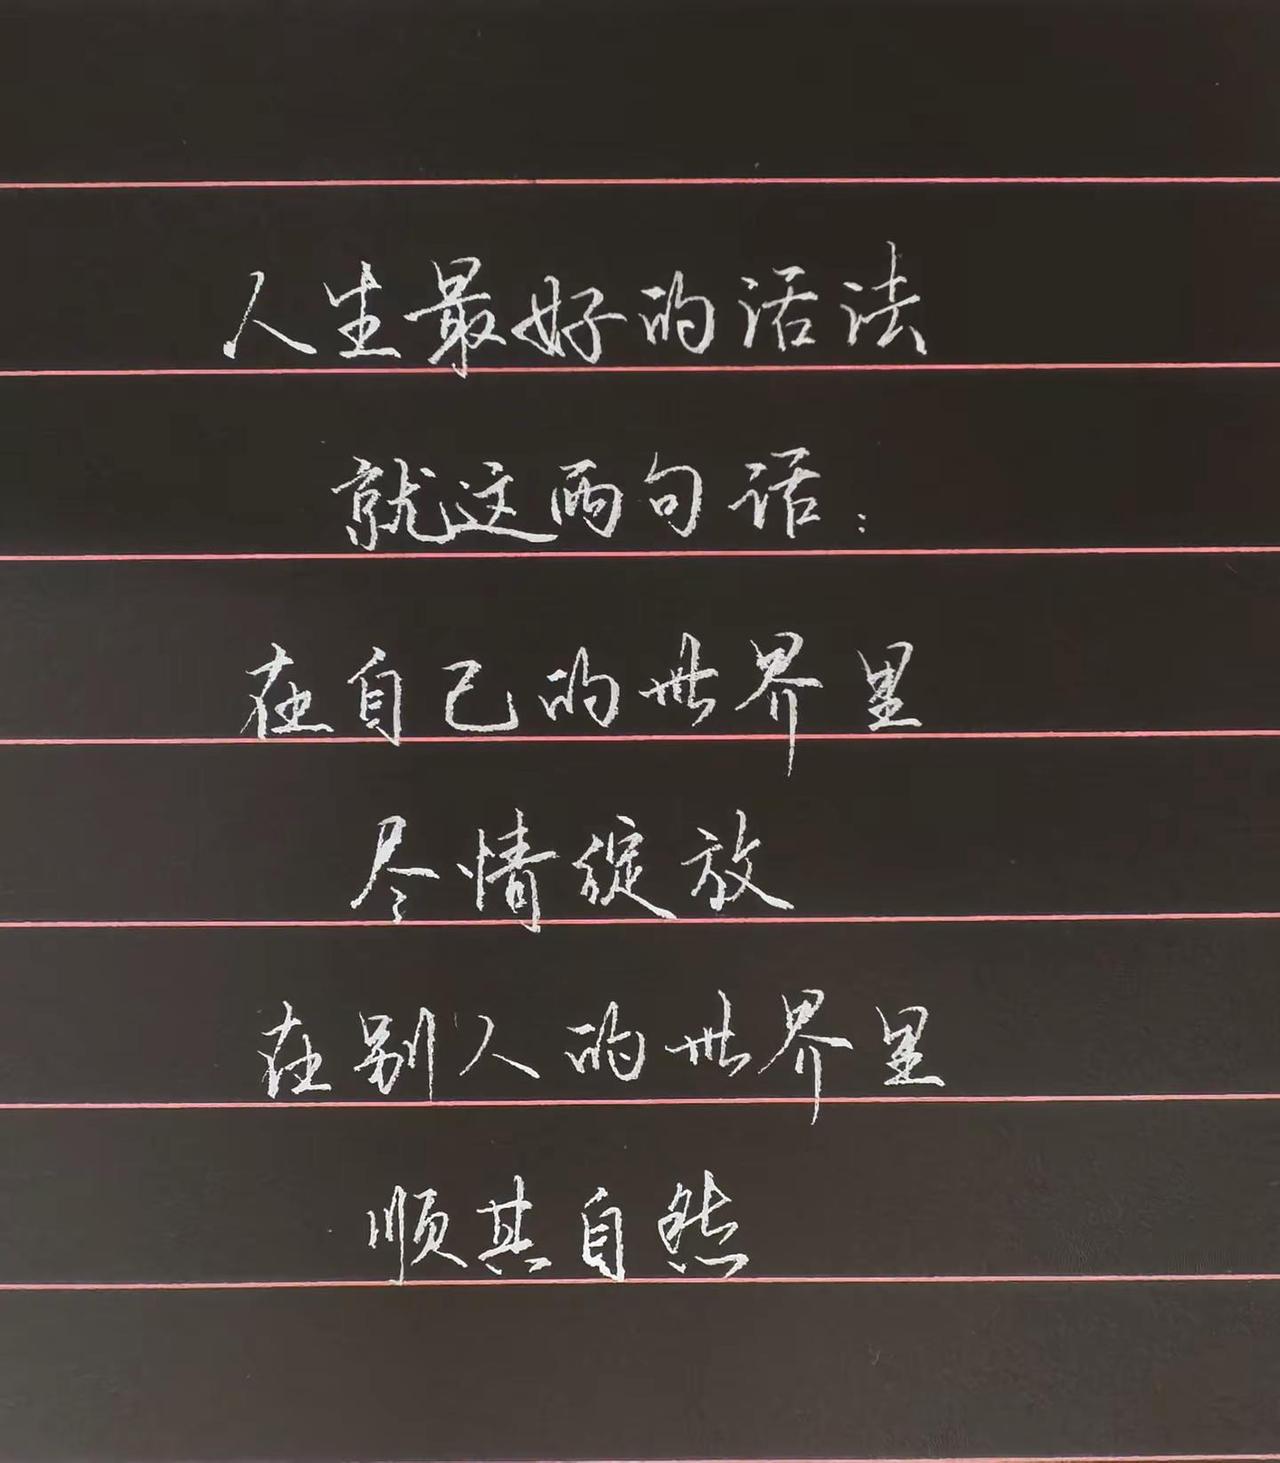 人生最好的活法
就这两句话：
在自己的世界里
尽情绽放
在别人的世界里
顺其自然